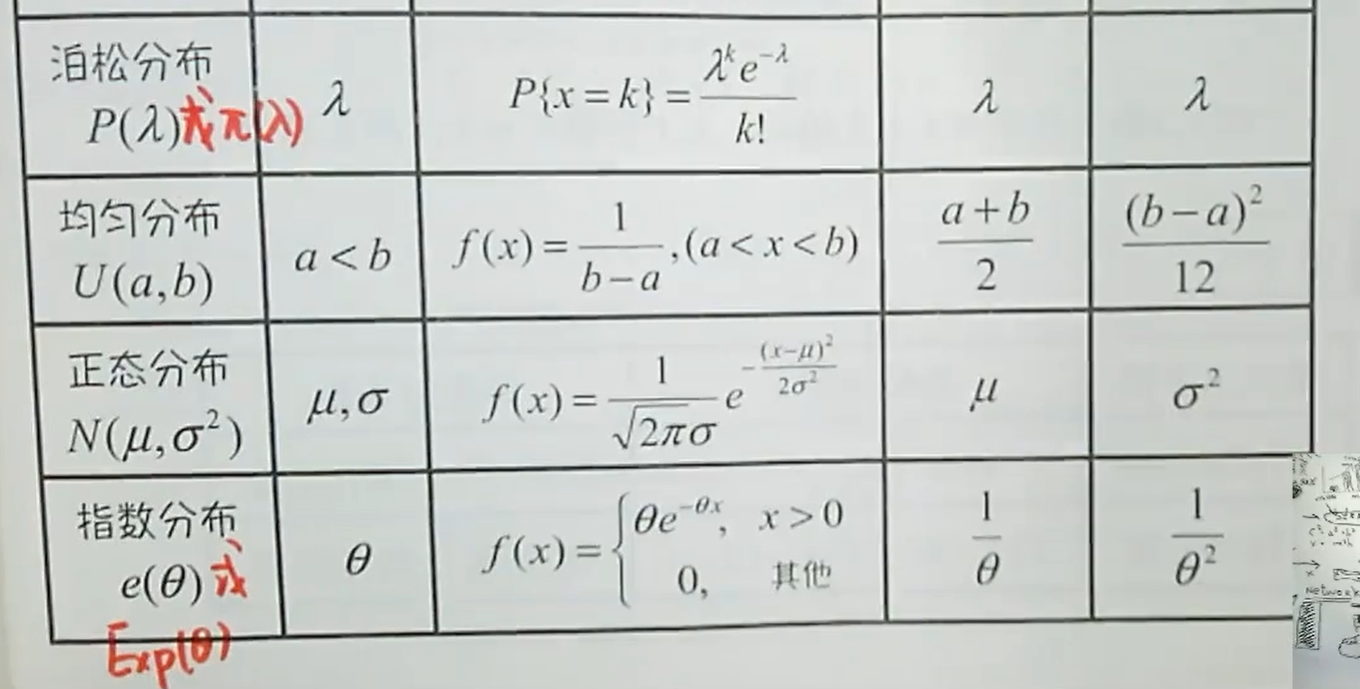 泊松分布
P(λ)或π(λ)
λ
P{x=k}=λ^k e^{-λ}/k!
λ
λ
均匀分布
U(a,b)
a<b
f(x)=1/(b-a),(a<x<b)
(a+b)/2
(b-a)²/12
正态分布
N(μ,σ²)
μ,σ
f(x)=1/(√(2π)σ) e^{-(x-μ)²/(2σ²)}
μ
σ²
指数分布
e(θ)或
Exp(θ)
θ
f(x)={θe^{-θx}, x>0
0, 其他
1/θ
1/θ²
Network